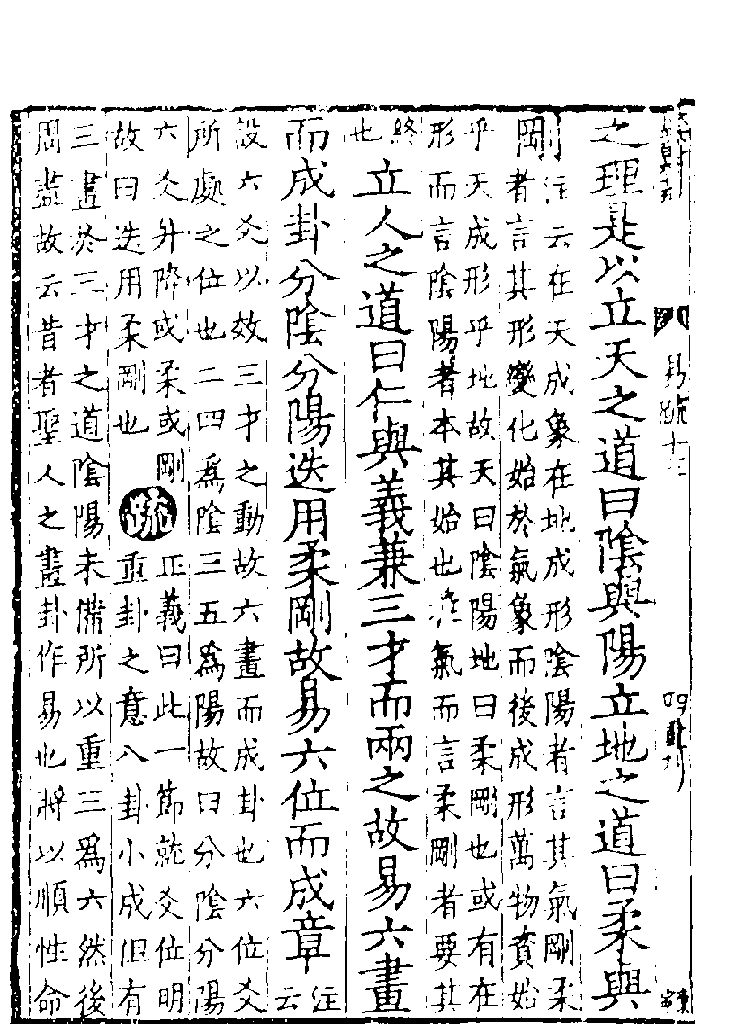 之理是以立天之道曰陰與陽立地之道曰柔與
剛
注云在天成象在地成形陰陽者言其氣剛柔
者言其形變化始於氣象而後成形萬物資始
乎天成形乎地故天曰陰陽地曰柔剛也或有在
形而言陰陽者本其始也在氣而言柔剛者要其
終
也
立人之道曰仁與義兼三才而兩之故易六畫
而成卦分陰分陽迭用柔剛故易六位而成章
注
云
設六爻以效三才之動故六畫而成卦也六位爻
所處之位也二四爲陰三五爲陽故曰分陰分陽
六爻升降或柔或剛
故曰迭用柔剛也
疏
正義曰此一節就爻位明
重卦之意八卦小成但有
三畫於三才之道陰陽未備所以重三爲六然後
周盡故云昔者聖人之畫卦作易也將以順性命